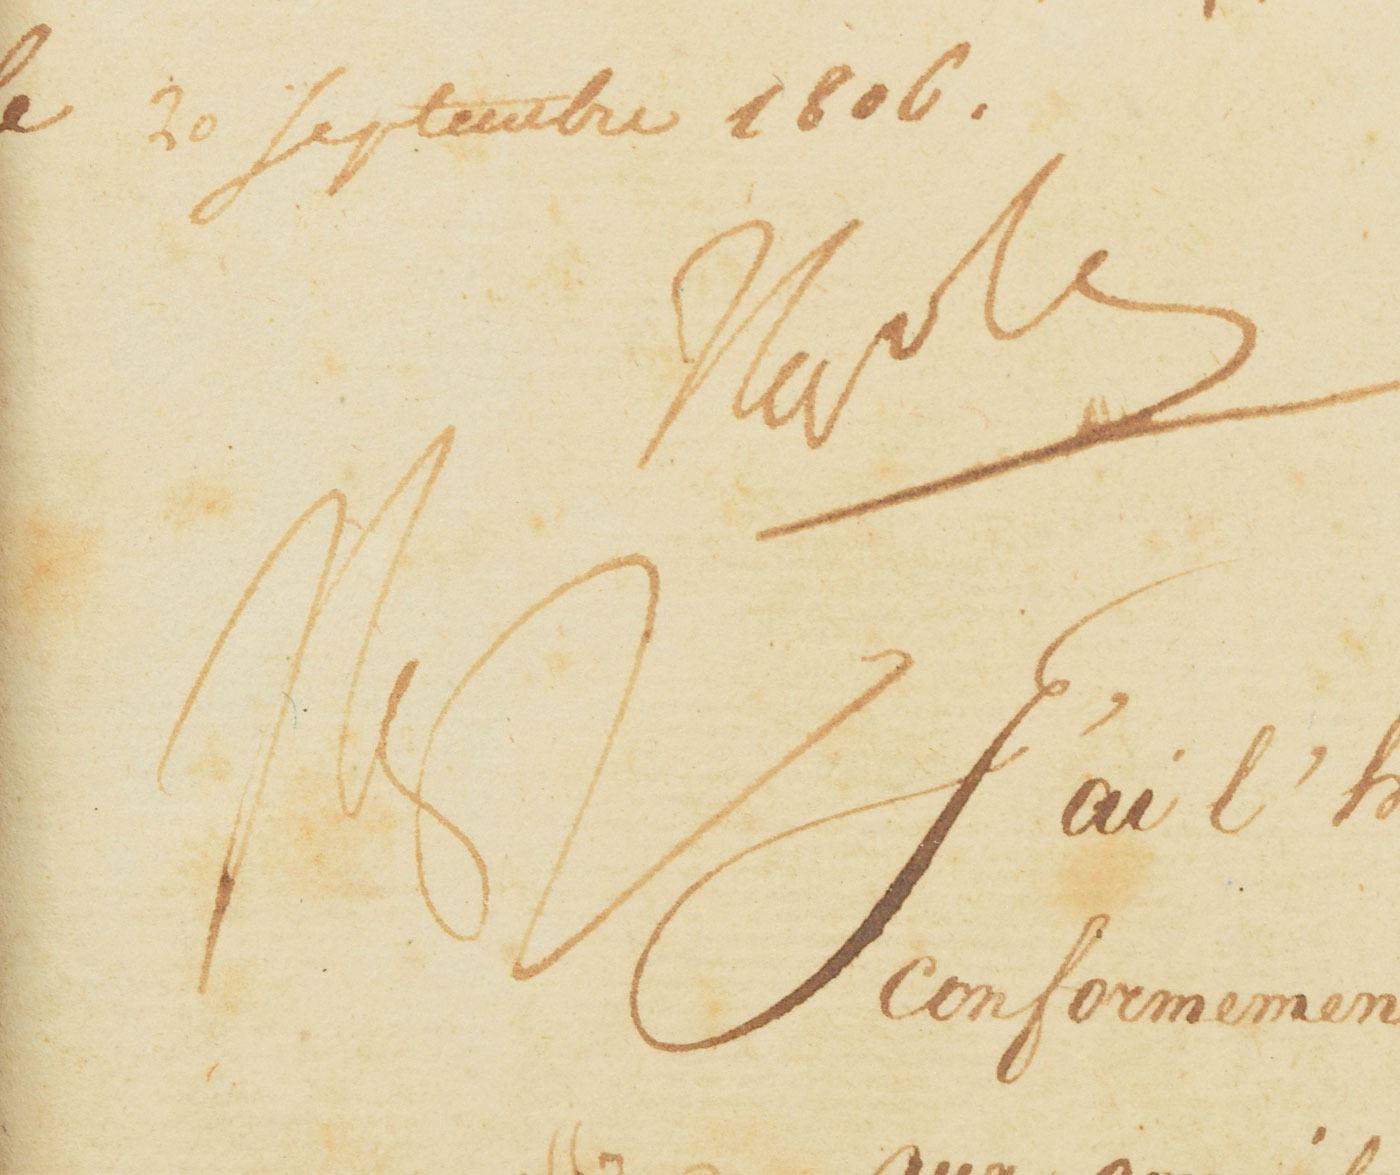 le 20 Septembre 1806.
Napole
J'ai l'h
conformemen